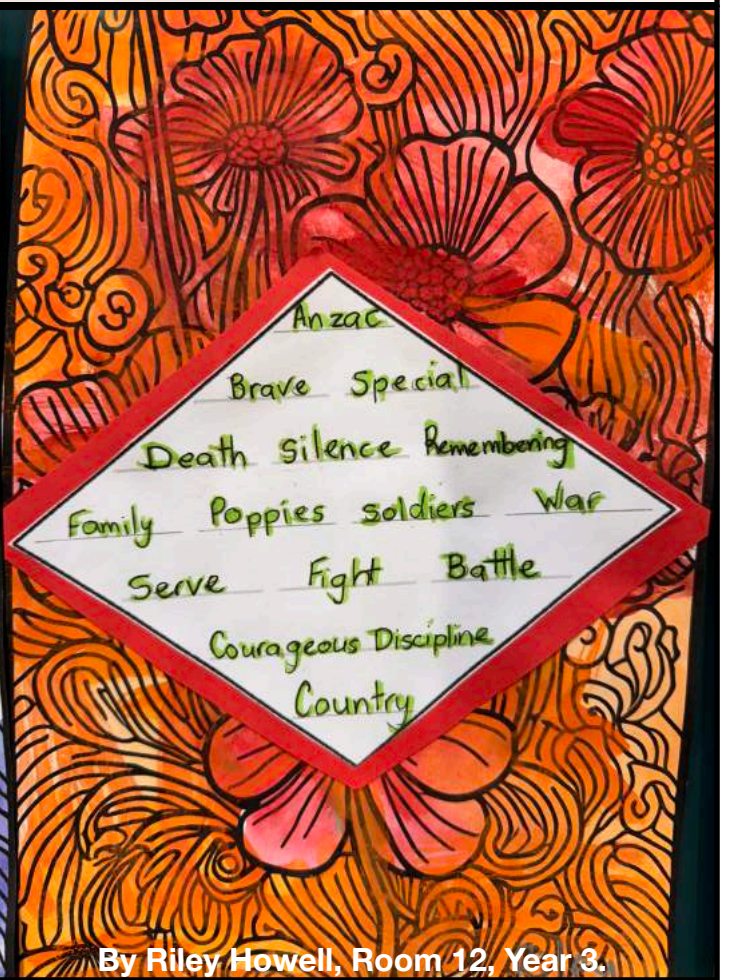 Anzac
Brave Special
Death silence Remembering
Family Poppies soldiers War
Serve Fight Battle
Courageous Discipline
Country
By Riley Howell, Room 12, Year 3.